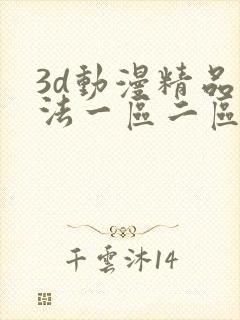 3d動漫精品
法一區二區
千雲沐14